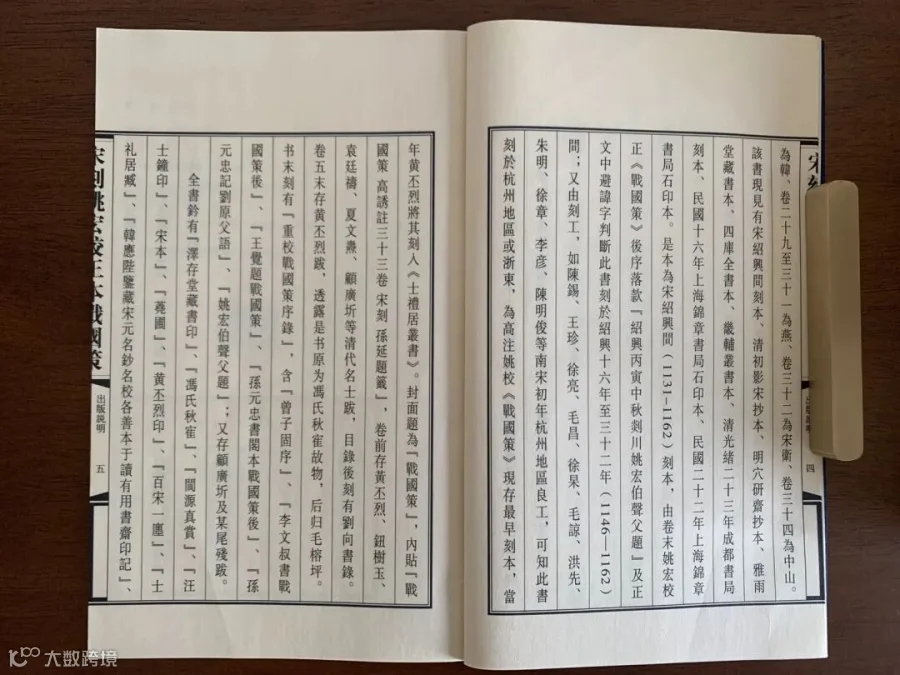 為韓、卷二十九至三十一為燕、卷三十二為宋衛、卷三十四為中山。
該書現見有宋紹興間刻本、清初影宋抄本、明穴研齋抄本、雅雨
堂藏書本、四庫全書本、畿輔叢書本、清光緒二十三年成都書局
刻本、民國十六年上海錦章書局石印本、民國二十二年上海錦章
書局石印本。是本為宋紹興間（1131-1162）刻本，由卷末姚宏校
正《戰國策》後序落款『紹興丙寅中秋剡川姚宏伯聲父題』及正
文中避諱字判斷此書刻於紹興十六年至三十二年（1146—1162）
間；又由刻工，如陳錫、王珍、徐亮、毛昌、徐杲、毛諒、洪先、
朱明、徐章、李彥、陳明俊等南宋初年杭州地區良工，可知此書
刻於杭州地區或浙東，為高注姚校《戰國策》現存最早刻本，當
四
出版説明
年黃丕烈將其刻入《士禮居叢書》。封面題為『戰國策』，內貼『戰
國策 高誘註三十三卷 宋刻 孫延題籤』，卷前存黃丕烈、鈕樹玉、
袁廷檮、夏文燾、顧廣圻等清代名士跋，目錄後刻有劉向書錄。
卷五末存黃丕烈跋，透露是书原为馮氏秋崔故物，后归毛榕坪。
书末刻有『重校戰國策序錄』，含『曾子固序』、『李文叔書戰
國策後』、『王覺題戰國策』、『孫元忠書閣本戰國策後』、『孫
元忠記劉原父語』、『姚宏伯聲父題』；又存顧廣圻及某尾殘跋。
全書鈐有『澤存堂藏書印』、『馮氏秋崔』、『閬源真賞』、『汪
士鐘印』、『宋本』、『蕘圃』、『黃丕烈印』、『百宋一廛』、『士
礼居臧』、『韓應陛鑒藏宋元名鈔名校各善本于讀有用書齋印記』、
宋刻姚宏校正本戰國策
出版説明
五
大数跨境